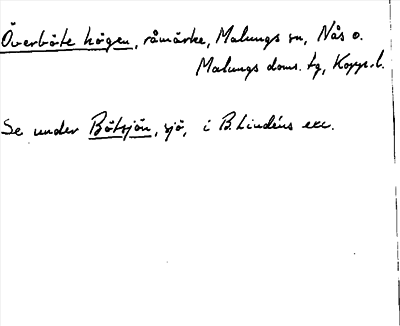 Överbåte högen, råmärke, Malungs sn, Nås o.
Malungs doms. tg, Kopp. l.
Se under Båtsjön, sjö, i B. Lindéns exc.